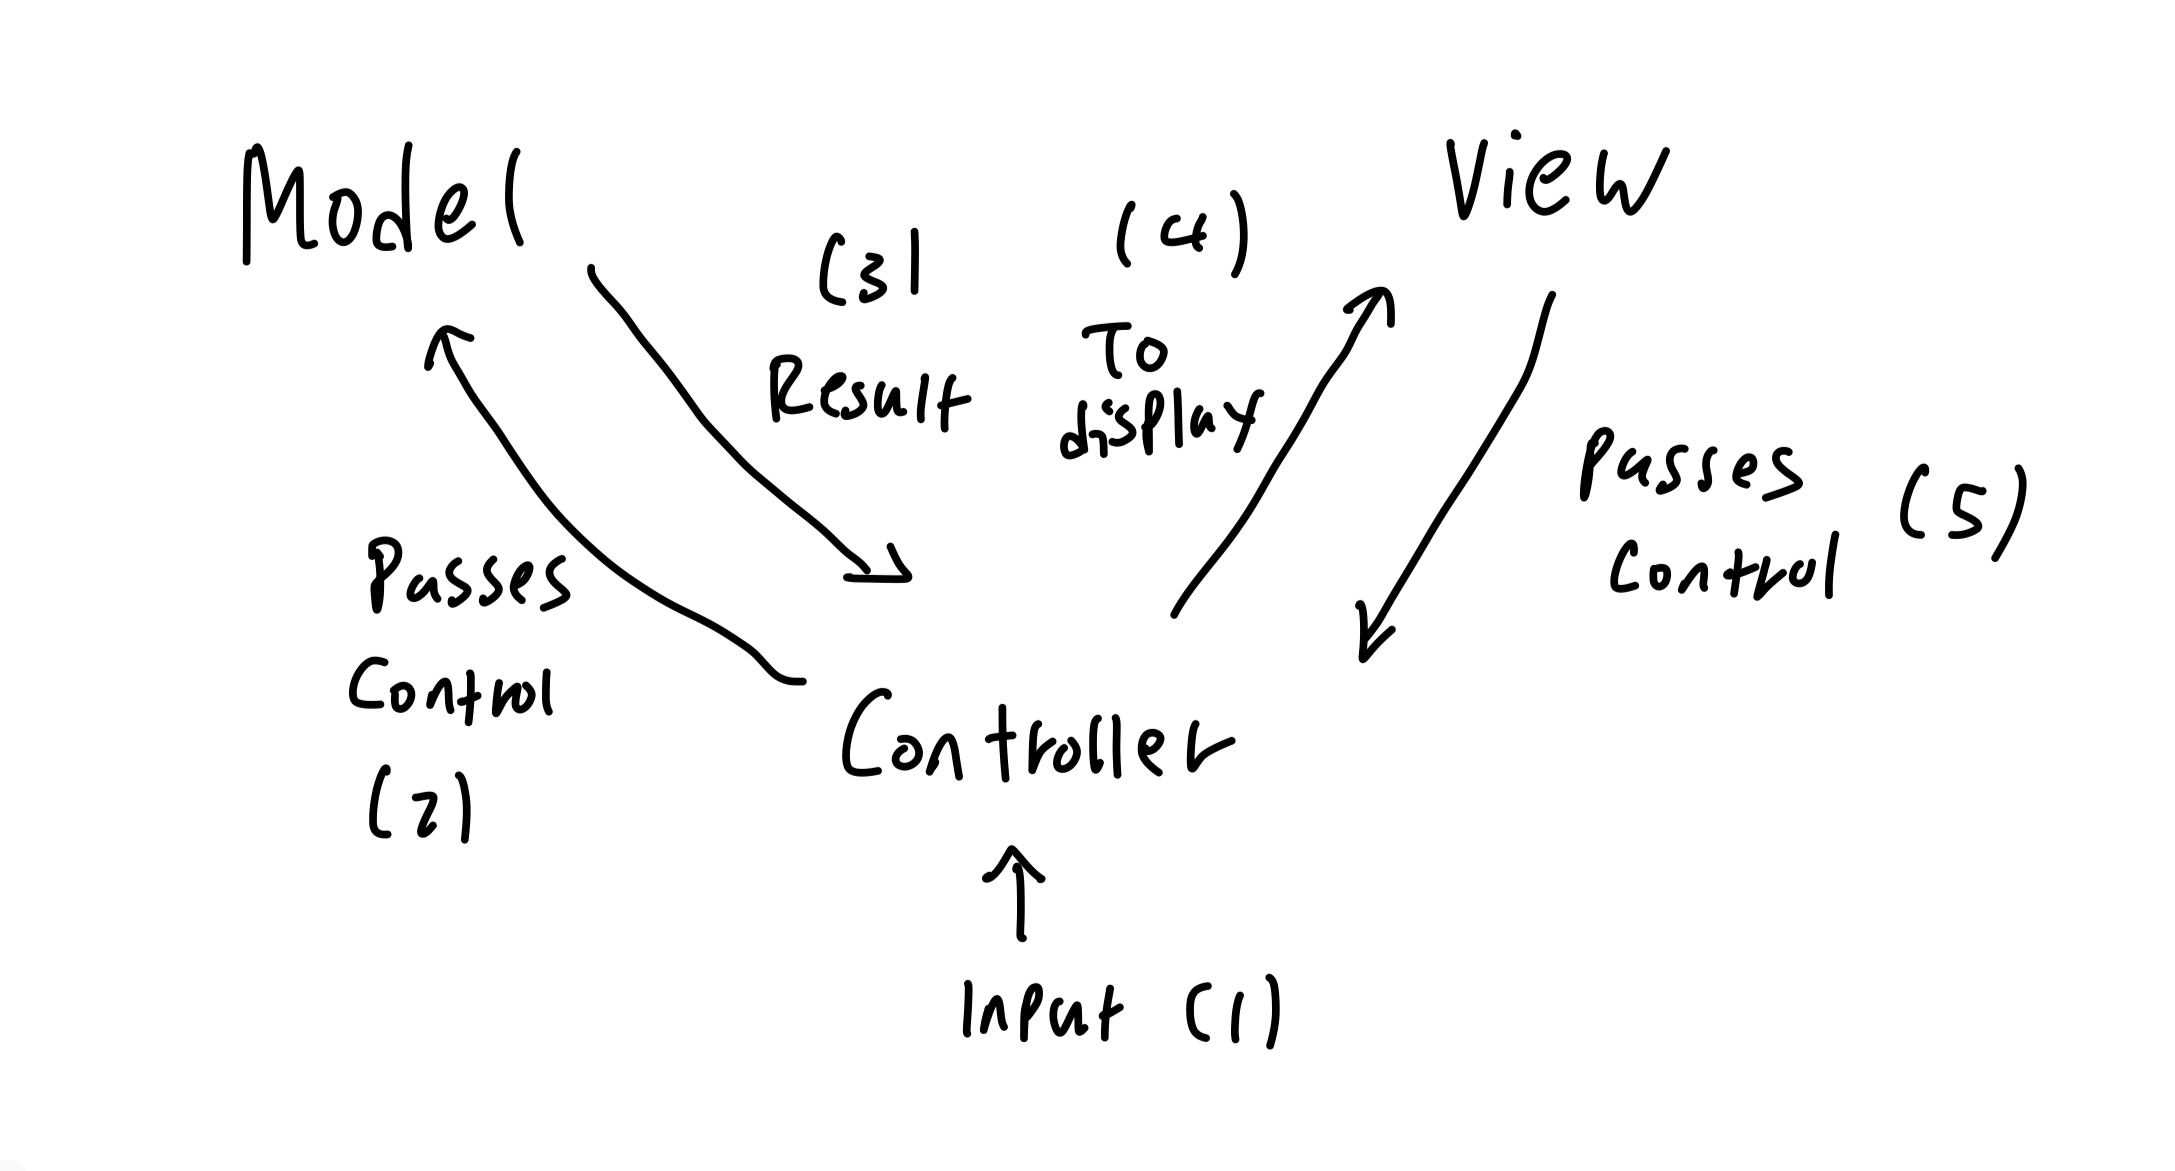 Model
View
(3)
Result
(4)
To
display
Passes
Control
(5)
Passes
Control
(2)
Controller
Input (1)